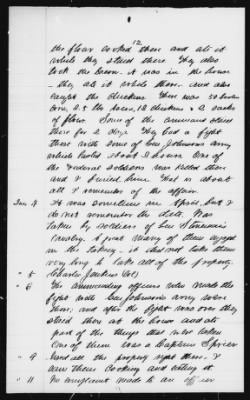 12
the flour cooked there and ate it
while they stood there They also
took the bacon. It was in the house
— they ate it while there and also
caught the chickens There was 50 bushels
corn, lbs bacon, 18 chickens & 2 sacks
of flour Some of the command stood
there for 2 days They had a fight
there with some of Gen Johnsons army
which lasted about 2 hours One of
the Federal soldiers was killed there
and I buried him. That is about
all I remember of the affair.
It was sometime in April, but I
do not remember the date. Was
taken by soldiers of Gen
Cavalry. A great many of them
in the taking, & it did not take them
very long to take all of the property.
" 5 Charles Jenkins (Col)
" 6 The commanding officers who made the
fight with Gen Johnsons army were
there, and after the fight was over they
stood there at the house and ate
part of the things that were taken
One of them was a Captain Spicer
" 9 Used all the property right there. I
saw them cooking and eating it
" 11 No complaint made to an officer